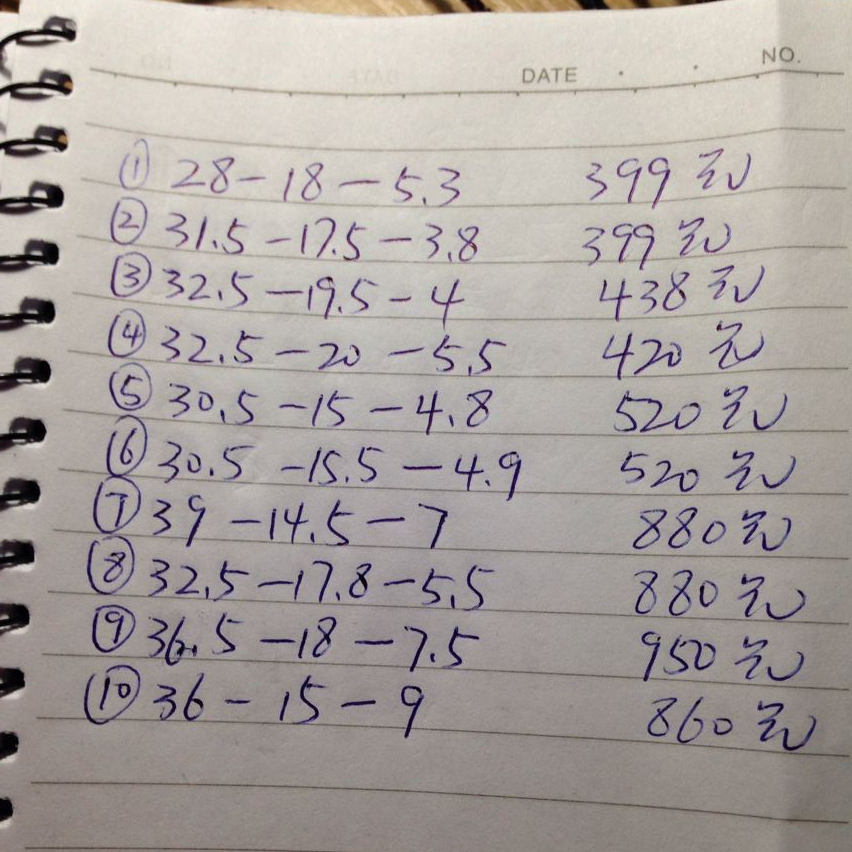 NO.
DATE
① 28－18－5.3 399元
② 31.5－17.5－3.8 399元
③ 32.5－19.5－4 438元
④ 32.5－20－5.5 420元
⑤ 30.5－15－4.8 520元
⑥ 30.5－15.5－4.9 520元
⑦ 39－14.5－7 880元
⑧ 32.5－17.8－5.5 880元
⑨ 36.5－18－7.5 950元
⑩ 36－15－9 860元